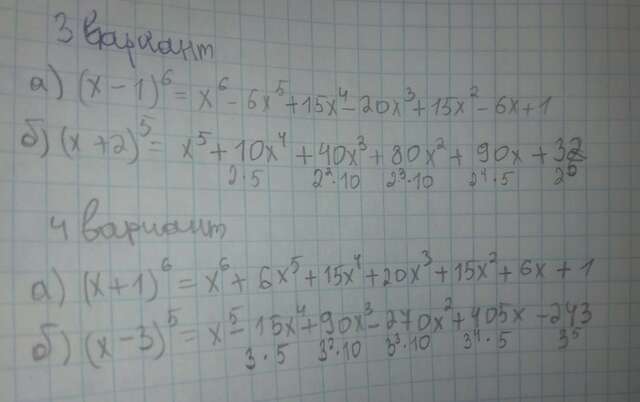 3 вариант
а) (x-1)⁶ = x⁶ - 6x⁵ + 15x⁴ - 20x³ + 15x² - 6x + 1
б) (x+2)⁵ = x⁵ + 10x⁴ + 40x³ + 80x² + 90x + 32
2·5 2²·10 2³·10 2⁴·5 2⁵
4 вариант
а) (x+1)⁶ = x⁶ + 6x⁵ + 15x⁴ + 20x³ + 15x² + 6x + 1
б) (x-3)⁵ = x⁵ - 15x⁴ + 90x³ - 270x² + 405x - 243
3·5 3²·10 3³·10 3⁴·5 3⁵